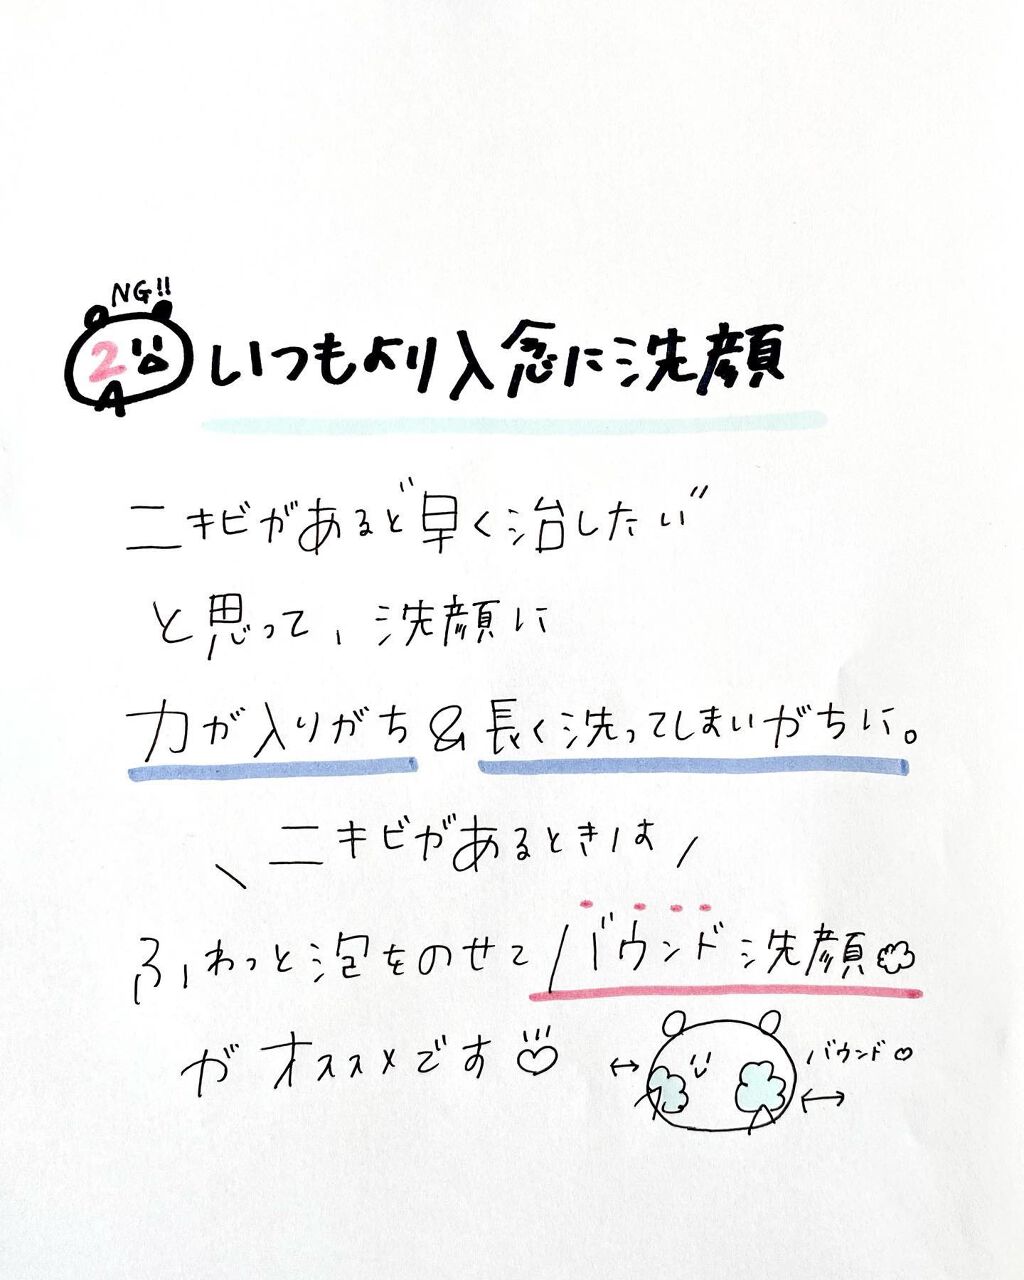 NG!!
2 いつもより入念に洗顔
ニキビがあると"早く治したい"
と思って、洗顔に
力が入りがち&長く洗ってしまいがちに。
\ ニキビがあるときは /
ふわっと泡をのせて バウンド洗顔
がオススメです♡
バウンド♡